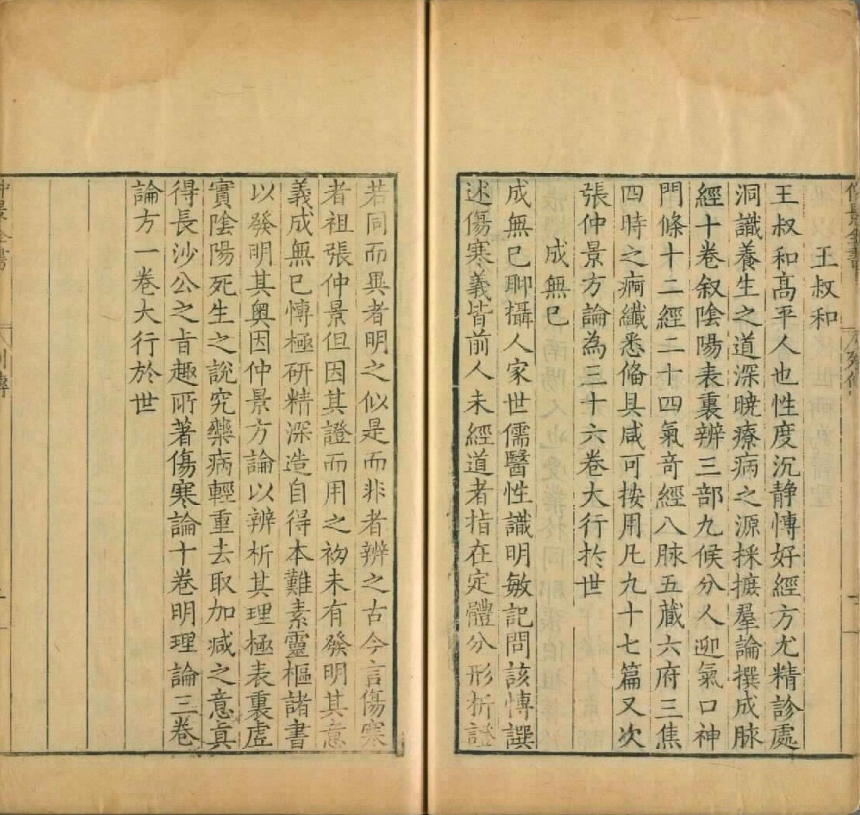 王叔和
王叔和高平人也性度沉静慱好經方尤精診處
洞識養生之道深曉療病之源採摭羣論撰成脉
經十卷叙陰陽表裏辨三部九候分人迎氣口神
門條十二經二十四氣奇經八脉五藏六府三焦
四時之痾纖悉俻具咸可按用凡九十七篇又次
張仲景方論為三十六卷大行於世
成無已
成無已聊攝人家世儒醫性識明敏記問該愽譔
述傷寒義皆前人未經道者指在定體分形析證
若同而異者明之似是而非者辨之古今言傷寒
者祖張仲景但因其證而用之初未有發明其意
義成無已愽極研精深造自得本難素靈樞諸書
以發明其奥因仲景方論以辨析其理極表裏虛
實陰陽死生之說究藥病輕重去取加减之意真
得長沙公之旨趣所著傷寒論十卷明理論三卷
論方一卷大行於世